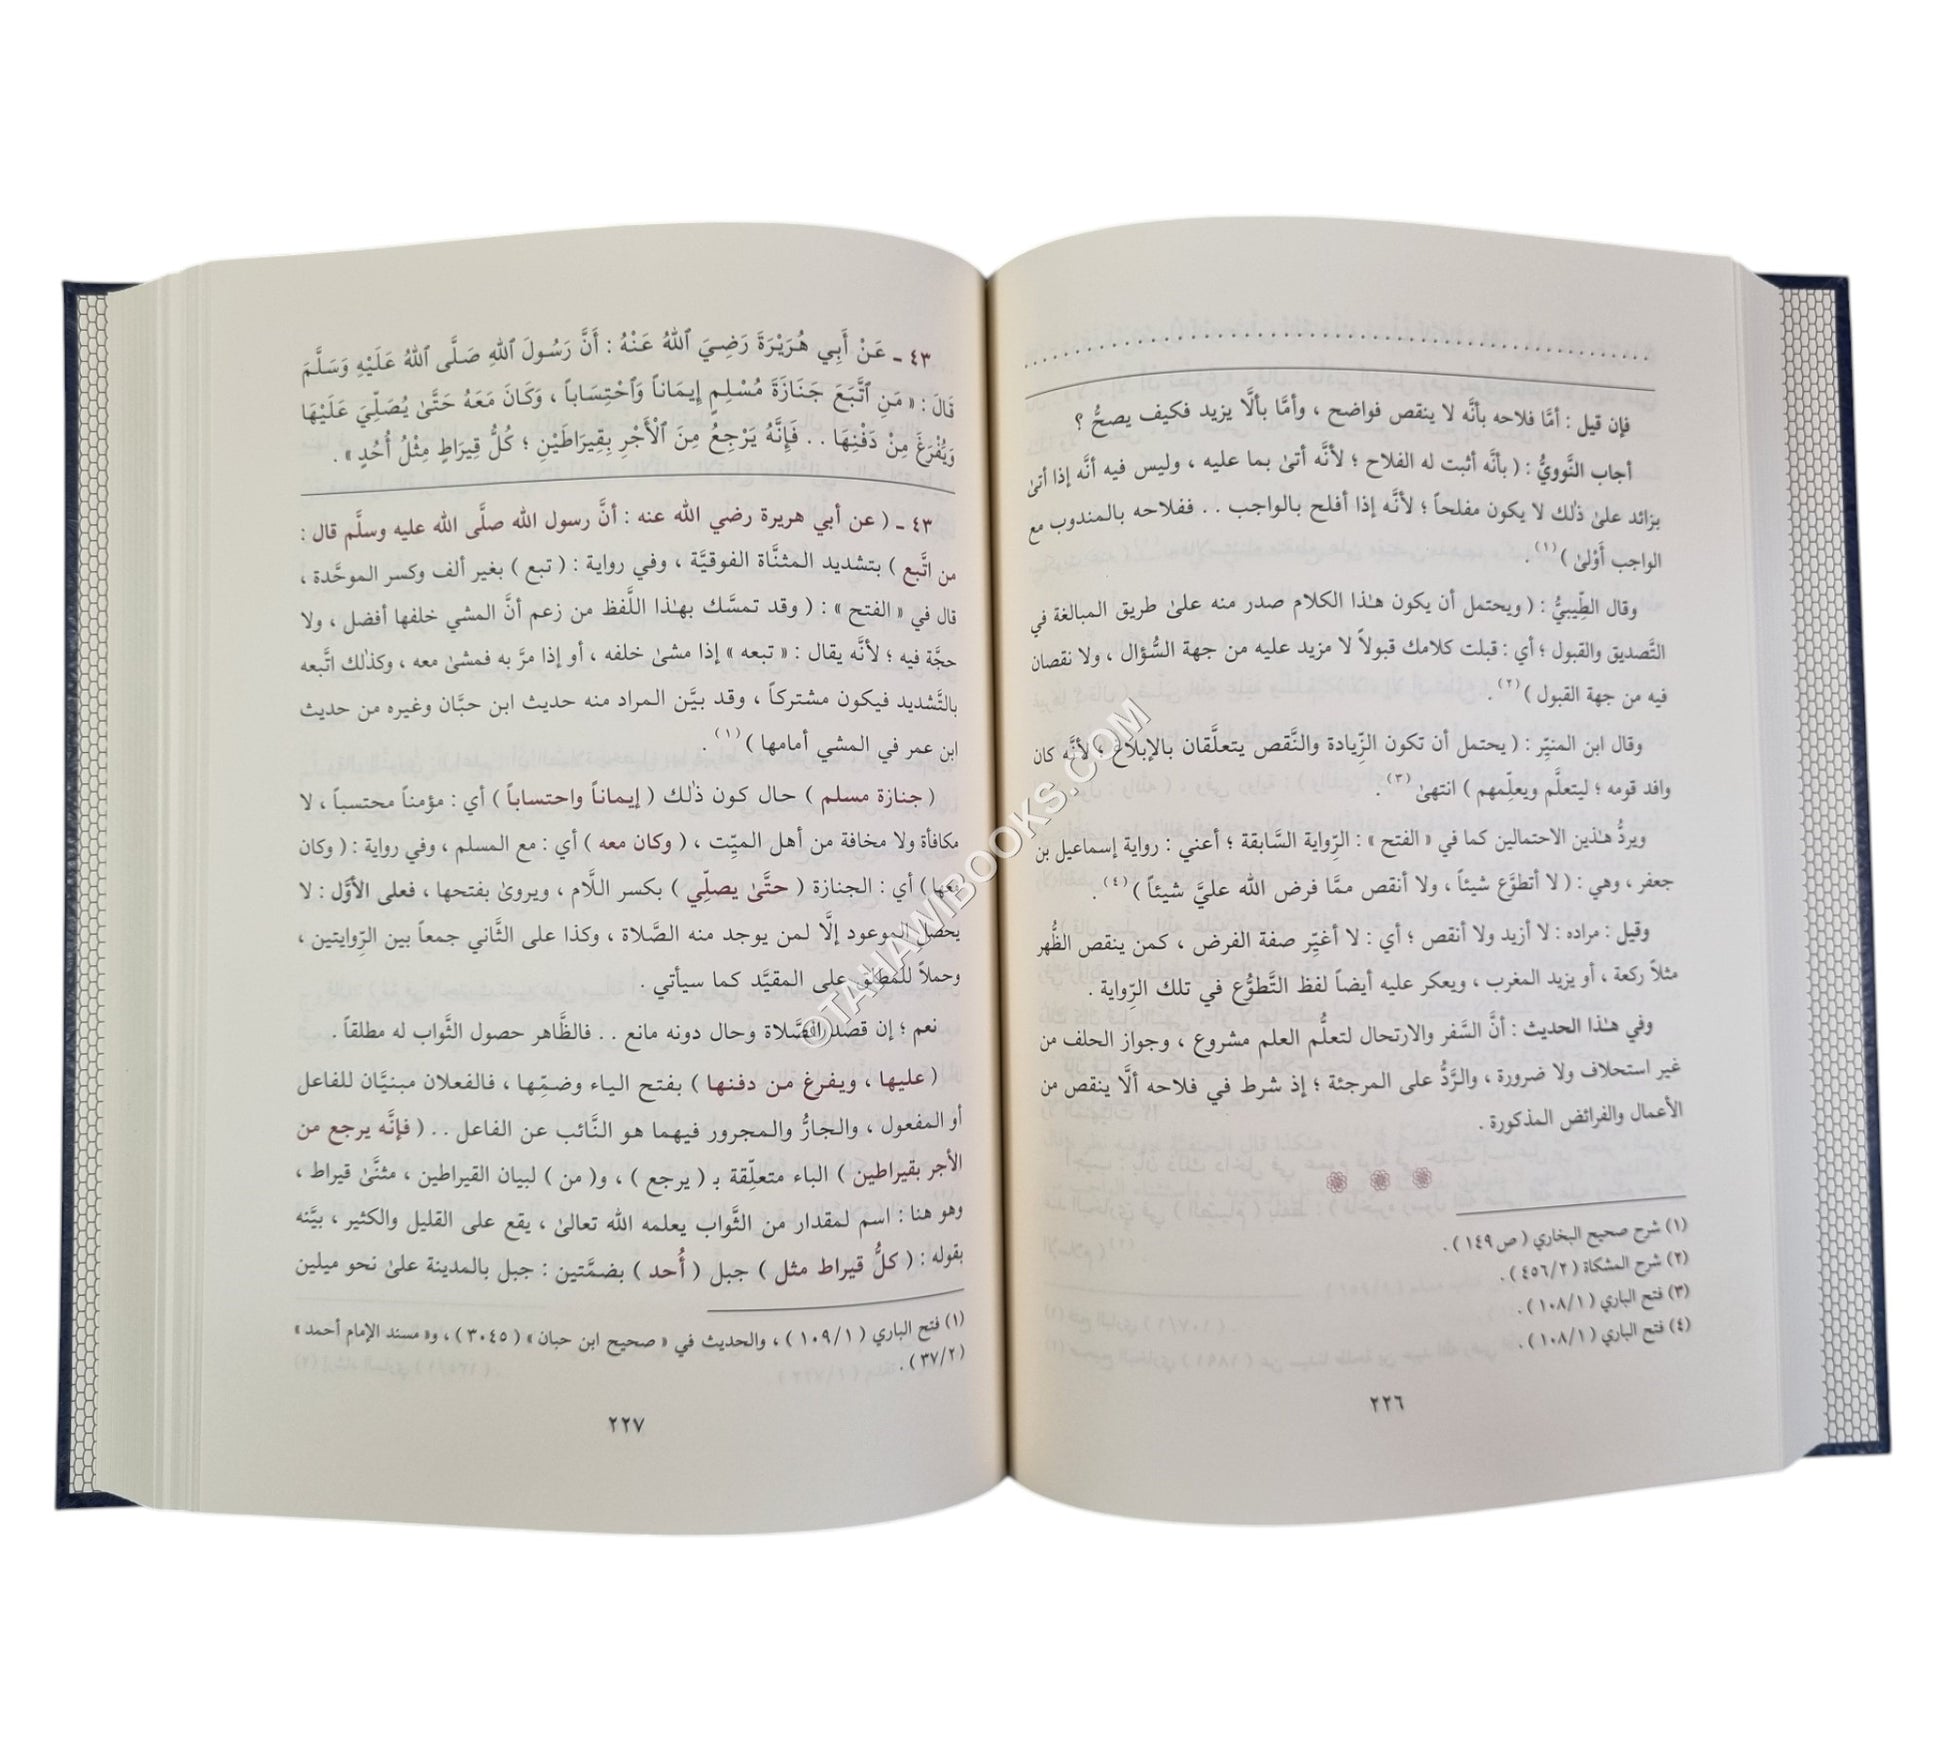 فإن قيل : أمَّا فلاحه بأنَّه لا ينقص فواضح ، وأمَّا بألَّا يزيد فكيف يصحُّ ؟
أجاب النَّوويُّ : ( بأنَّه أثبت له الفلاح ؛ لأنَّه أتىٰ بما عليه ، وليس فيه أنَّه إذا أتىٰ
بزائد علىٰ ذٰلك لا يكون مفلحاً ؛ لأنَّه إذا أفلح بالواجب . . ففلاحه بالمندوب مع
الواجب أَوْلىٰ ) (١) .
وقال الطِّيبيُّ : ( ويحتمل أن يكون هـٰذا الكلام صدر منه علىٰ طريق المبالغة في
التَّصديق والقبول ؛ أي : قبلت كلامك قبولاً لا مزيد عليه من جهة السُّؤال ، ولا نقصان
فيه من جهة القبول ) (٢) .
وقال ابن المنيِّر : ( يحتمل أن تكون الزِّيادة والنَّقص يتعلَّقان بالإبلاغ ؛ لأنَّه كان
وافد قومه ؛ ليتعلَّم ويعلِّمهم ) انتهىٰ (٣) .
ويردُّ هـٰذين الاحتمالين كما في « الفتح » : الرِّواية السَّابقة ؛ أعني : رواية إسماعيل بن
جعفر ، وهي : ( لا أتطوَّع شيئاً ، ولا أنقص ممَّا فرض الله عليَّ شيئاً ) (٤) .
وقيل : مراده : لا أزيد ولا أنقص ؛ أي : لا أغيِّر صفة الفرض ، كمن ينقص الظُّهر
مثلاً ركعة ، أو يزيد المغرب ، ويعكر عليه أيضاً لفظ التَّطوُّع في تلك الرِّواية .
وفي هـٰذا الحديث : أنَّ السَّفر والارتحال لتعلُّم العلم مشروع ، وجواز الحلف من
غير استحلاف ولا ضرورة ، والرَّدُّ على المرجئة ؛ إذ شرط في فلاحه ألَّا ينقص من
الأعمال والفرائض المذكورة .
(١) شرح صحيح البخاري ( ص ١٤٩ ) .
(٢) شرح المشكاة ( ٤٥٦/٢ ) .
(٣) فتح الباري ( ١٠٨/١ ) .
(٤) فتح الباري ( ١٠٨/١ ) .
٢٢٦
٤٣ ـ عَنْ أَبِي هُرَيْرَةَ رَضِيَ ٱللهُ عَنْهُ : أَنَّ رَسُولَ ٱللهِ صَلَّى ٱللهُ عَلَيْهِ وَسَلَّمَ
قَالَ : « مَنِ ٱتَّبَعَ جَنَازَةَ مُسْلِمٍ إِيمَاناً وَٱحْتِسَاباً ، وَكَانَ مَعَهُ حَتَّىٰ يُصَلِّيَ عَلَيْهَا
وَيُفْرَغَ مِنْ دَفْنِهَا . . فَإِنَّهُ يَرْجِعُ مِنَ ٱلْأَجْرِ بِقِيرَاطَيْنِ ؛ كُلُّ قِيرَاطٍ مِثْلُ أُحُدٍ » .
٤٣ ـ ( عن أبي هريرة رضي الله عنه : أنَّ رسول الله صلَّى الله عليه وسلَّم قال :
من اتَّبع ) بتشديد المثنَّاة الفوقيَّة ، وفي رواية : ( تبع ) بغير ألف وكسر الموحَّدة ،
قال في « الفتح » : ( وقد تمسَّك بهـٰذا اللَّفظ من زعم أنَّ المشي خلفها أفضل ، ولا
حجَّة فيه ؛ لأنَّه يقال : « تبعه » إذا مشىٰ خلفه ، أو إذا مرَّ به فمشىٰ معه ، وكذٰلك اتَّبعه
بالتَّشديد فيكون مشتركاً ، وقد بيَّن المراد منه حديث ابن حبَّان وغيره من حديث
ابن عمر في المشي أمامها ) (١) .
( جنازة مسلم ) حال كون ذٰلك ( إيماناً واحتساباً ) أي : مؤمناً محتسباً ، لا
مكافأة ولا مخافة من أهل الميِّت ، ( وكان معه ) أي : مع المسلم ، وفي رواية : ( وكان
معها ) أي : الجنازة ( حتَّىٰ يصلِّي ) بكسر اللَّام ، ويروىٰ بفتحها ، فعلى الأوَّل : لا
يحصل الموعود إلَّا لمن يوجد منه الصَّلاة ، وكذا على الثَّاني جمعاً بين الرِّوايتين ،
وحملاً للمطلق على المقيَّد كما سيأتي .
نعم ؛ إن قصد الصَّلاة وحال دونه مانع . . فالظَّاهر حصول الثَّواب له مطلقاً .
( عليها ، ويفرغ من دفنها ) بفتح الياء وضمِّها ، فالفعلان مبنيَّان للفاعل
أو المفعول ، والجارُّ والمجرور فيهما هو النَّائب عن الفاعل . . ( فإنَّه يرجع من
الأجر بقيراطين ) الباء متعلِّقة بـ ( يرجع ) ، و( من ) لبيان القيراطين ، مثنَّىٰ قيراط ،
وهو هنا : اسم لمقدار من الثَّواب يعلمه الله تعالىٰ ، يقع على القليل والكثير ، بيَّنه
بقوله : ( كلُّ قيراط مثل ) جبل ( أُحد ) بضمَّتين : جبل بالمدينة علىٰ نحو ميلين
(١) فتح الباري ( ١٠٩/١ ) ، والحديث في « صحيح ابن حبان » ( ٣٠٤٥ ) ، و« مسند الإمام أحمد »
( ٣٧/٢ ) .
٢٢٧
©TAHAWIBOOKS.COM